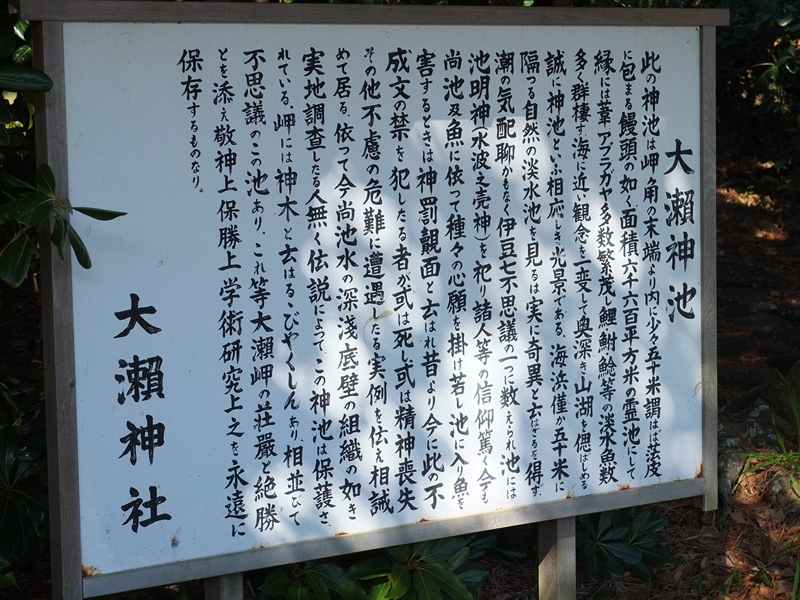 大瀬神池
此の神池は岬ノ角の末端より内に少々五十米謂はば茨皮
に包まる饅頭の如く面積六千六百平方米の霊池にして
縁には葦アブラガヤ多数繁茂し鯉鮒鯰等の淡水魚数
多く群棲す海に近い観念を一変して奥深き山湖を偲ばしめる
誠に神池といふ相応しき光景である。海浜僅か五十米に
隔つる自然の淡水池を見るは実に奇異と云はざるを得ず。
潮の気配聊かもなく伊豆七不思議の一つに数えられ池には
池明神(水波之売神)を祀り諸人等の信仰篤く今も
尚池及魚に依って種々の心願を掛け若し池に入り魚を
害するときは神罰覿面と云はれ昔より今に此の不
成文の禁を犯したる者が或は死し或は精神喪失
その他不慮の危難に遭遇したる実例を伝え相誡
めて居る、依って今尚池水の深浅底壁の組織の如き
実地調査したる人無く伝説によって、この神池は保護さ
れている、岬には神木と云はるゝびやくしんあり、相並びて
不思議のこの池あり、これ等大瀬岬の荘厳と絶勝
とを添え敬神上保勝上学術研究上之を永遠に
保存するものなり。
大瀬神社